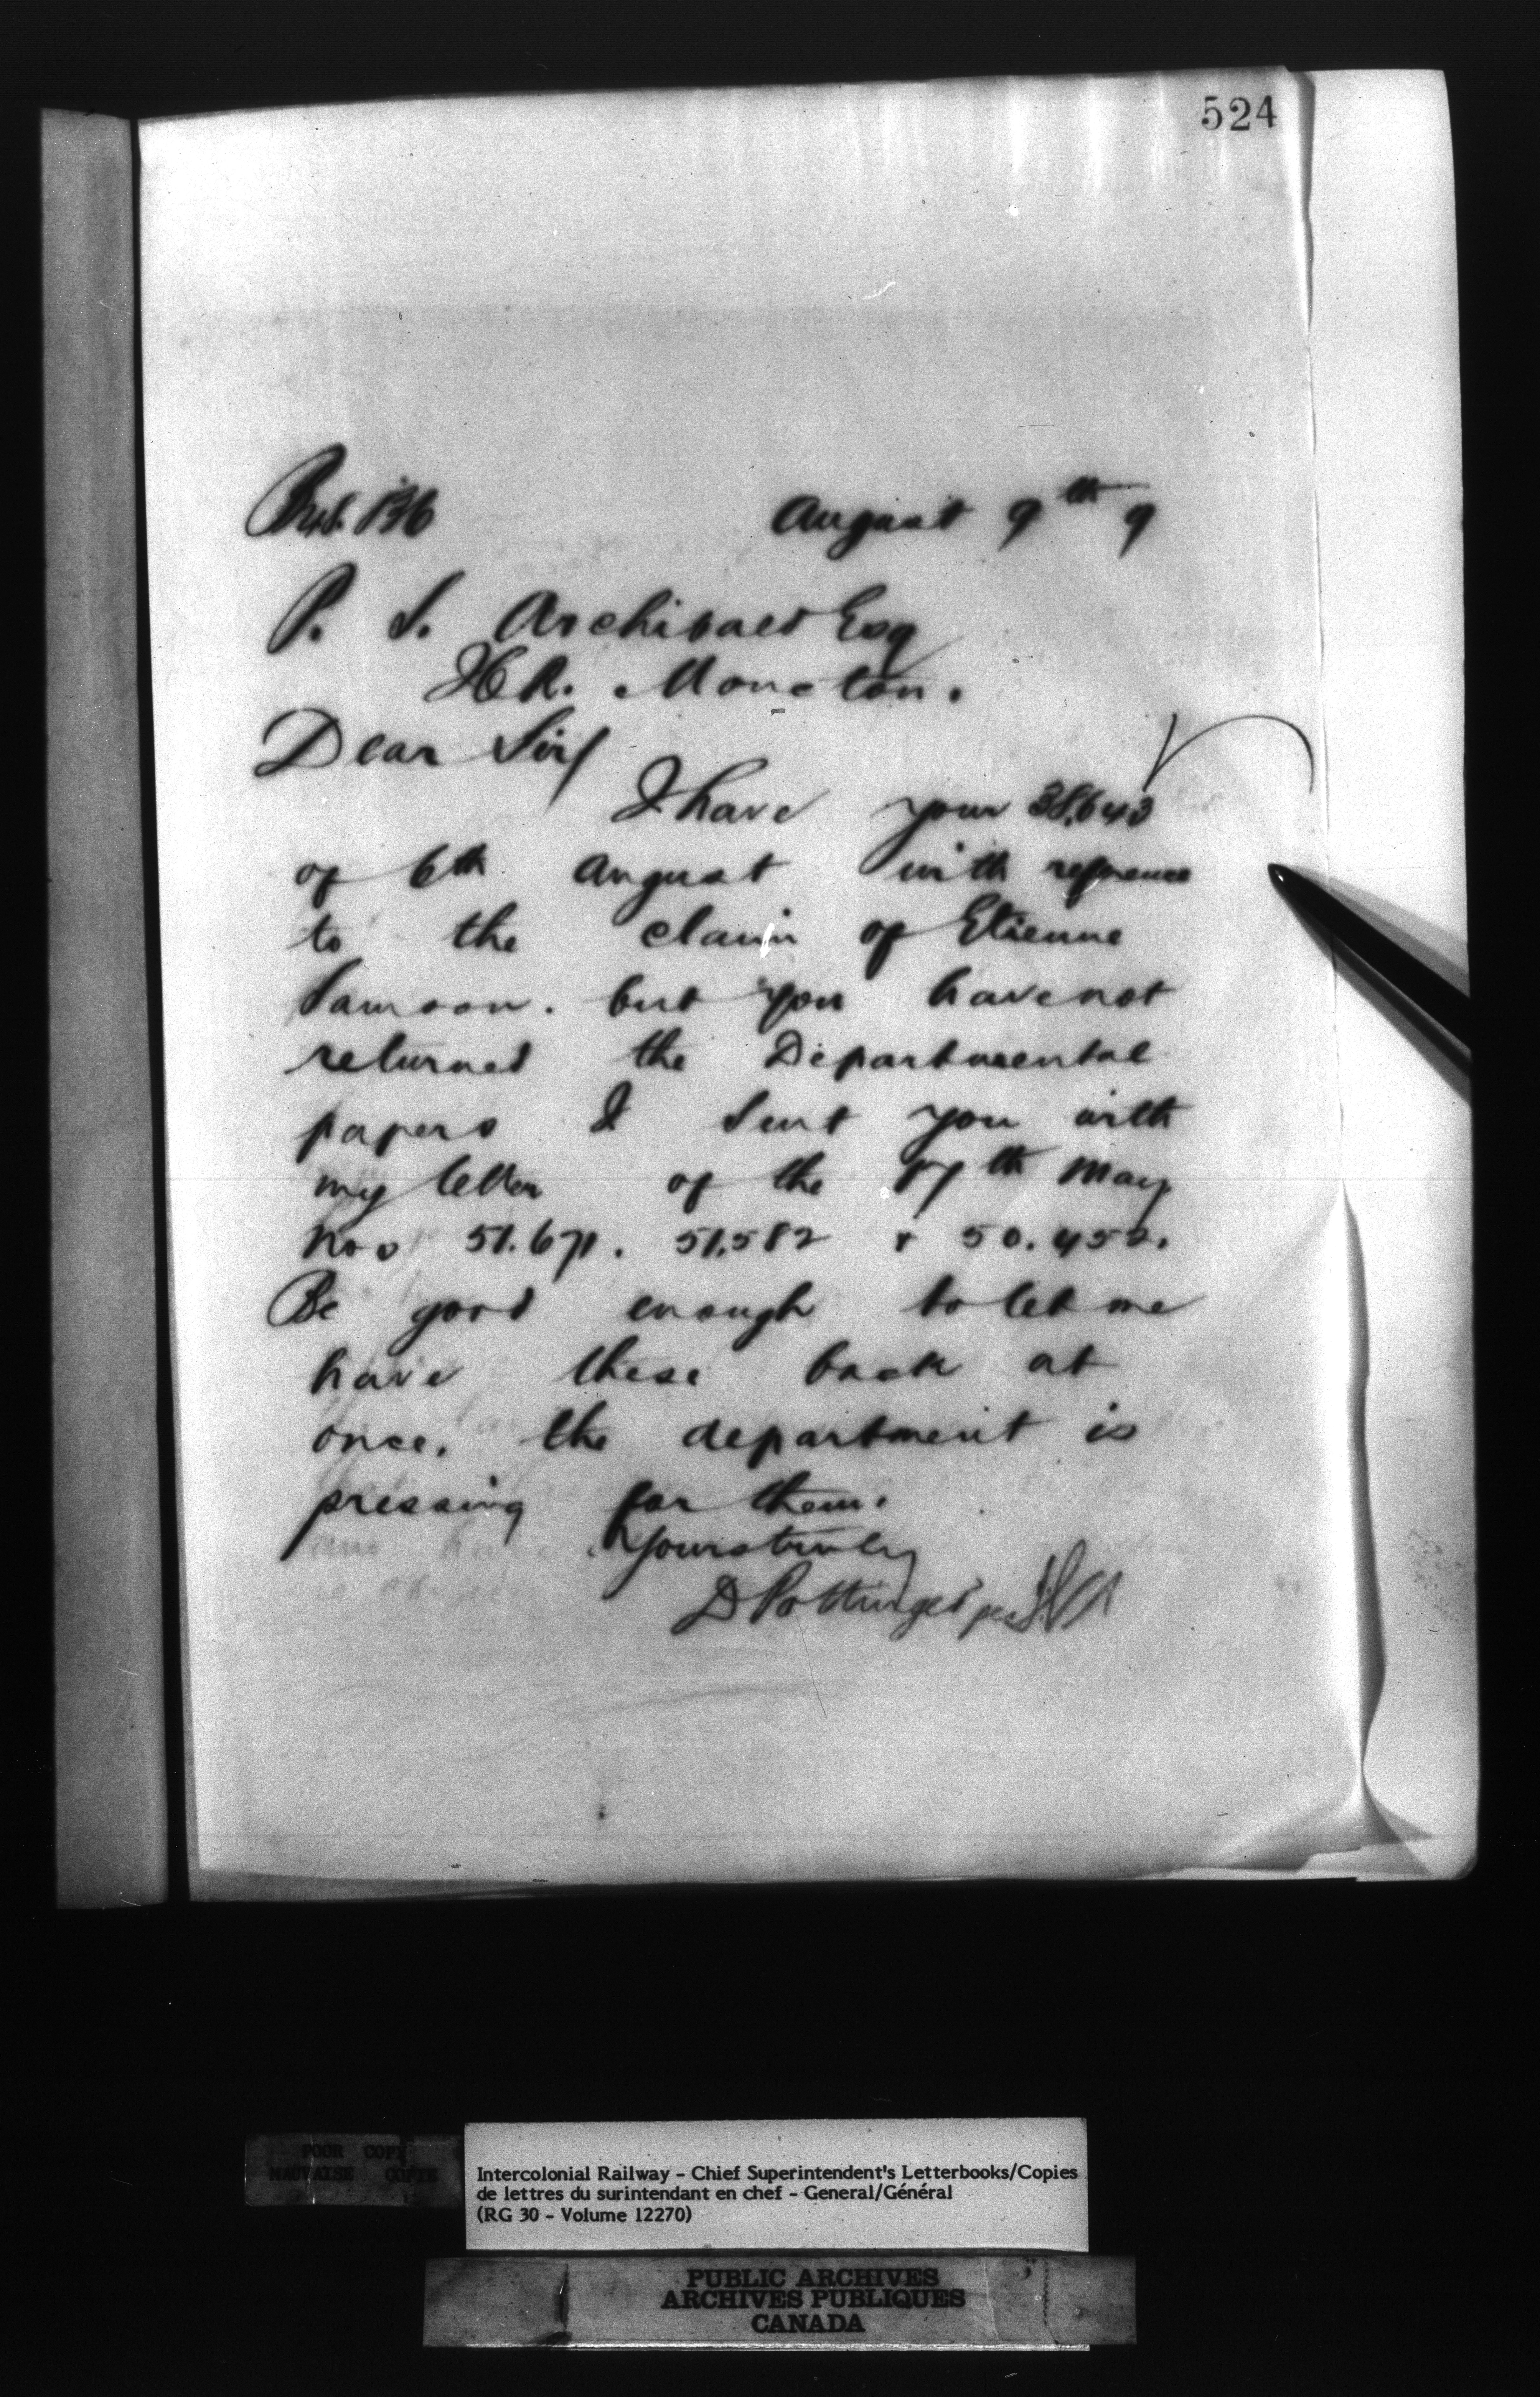 524
August 9th 9
P. S. Archibald Esq
ICR. Moncton.
Dear Sir/
I have your 38,643
of 6th August with reference
to the claim of Etienne
Samson. but you have not
returned the Departmental
papers I sent you with
my letter of the 17th May
Nos 51.671. 51,582 & 50.452.
Be good enough to let me
have these back at
once. the department is
pressing for them.
Yours truly
D Pottinger per
POOR COPY
MAUVAISE COPIE
Intercolonial Railway - Chief Superintendent's Letterbooks/Copies
de lettres du surintendant en chef - General/Général
(RG 30 - Volume 12270)
PUBLIC ARCHIVES
ARCHIVES PUBLIQUES
CANADA